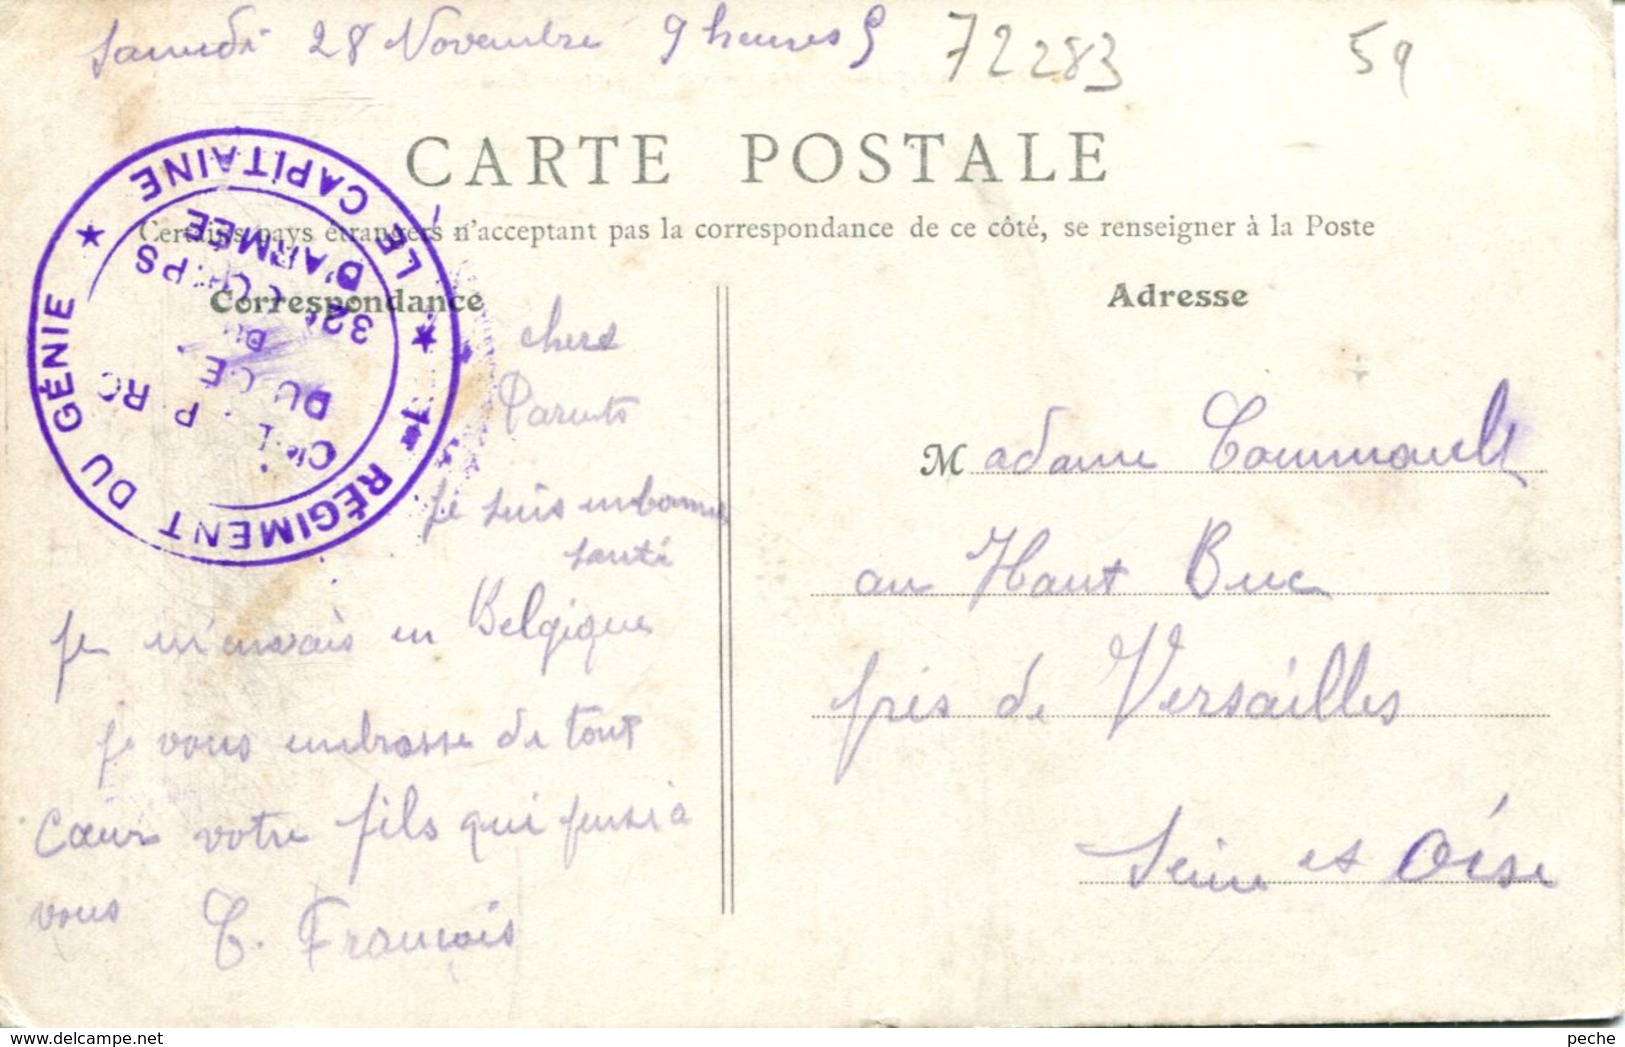 Samedi 28 Novembre 9 heures S
72283
59
CARTE POSTALE
Certains pays étrangers n'acceptant pas la correspondance de ce côté, se renseigner à la Poste
Correspondance
Adresse
1er RÉGIMENT DU GÉNIE ★ LE CAPITAINE ★
DU
32e CORPS
D'ARMÉE
chers
Parents
Je suis en bonne
santé
Je m'en vais en Belgique
je vous embrasse de tout
Cœur votre fils qui pense à
vous C. François
Madame Commault
au Haut Buc
près de Versailles
Seine et Oise
peche